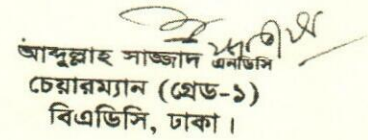 আব্দুল্লাহ সাজ্জাদ এনডিসি
চেয়ারম্যান (গ্রেড-১)
বিএডিসি, ঢাকা।